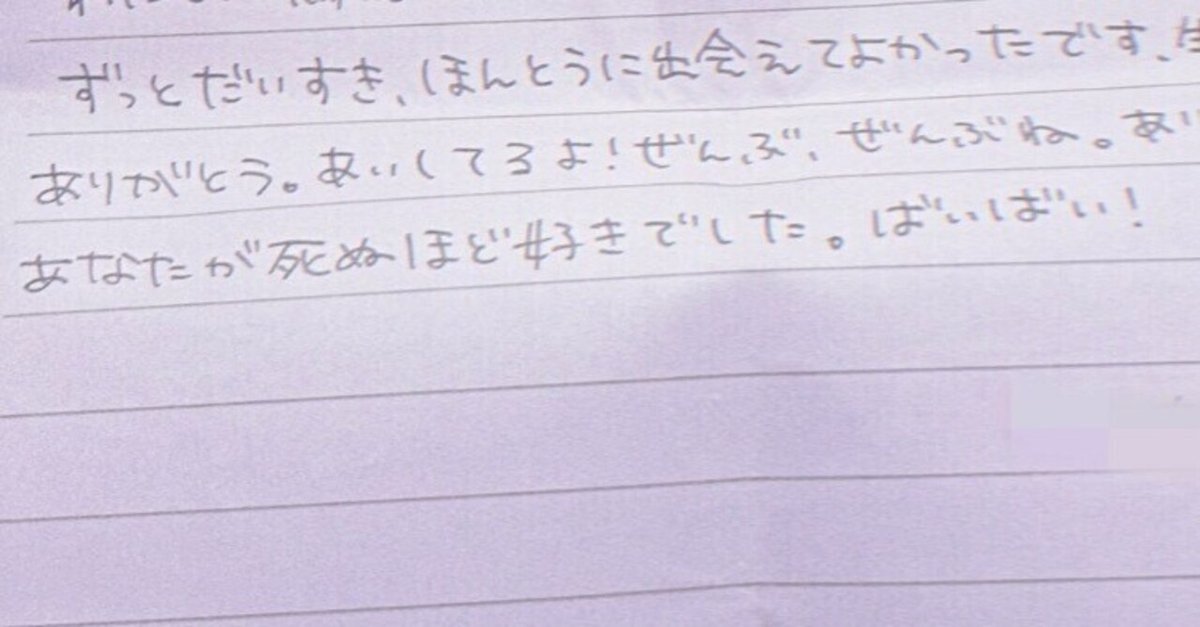 ずっとだいすき、ほんとうに出会えてよかったです、
ありがとう。あいしてるよ！ぜんぶ、ぜんぶね。あり
あなたが死ぬほど好きでした。ばいばい！